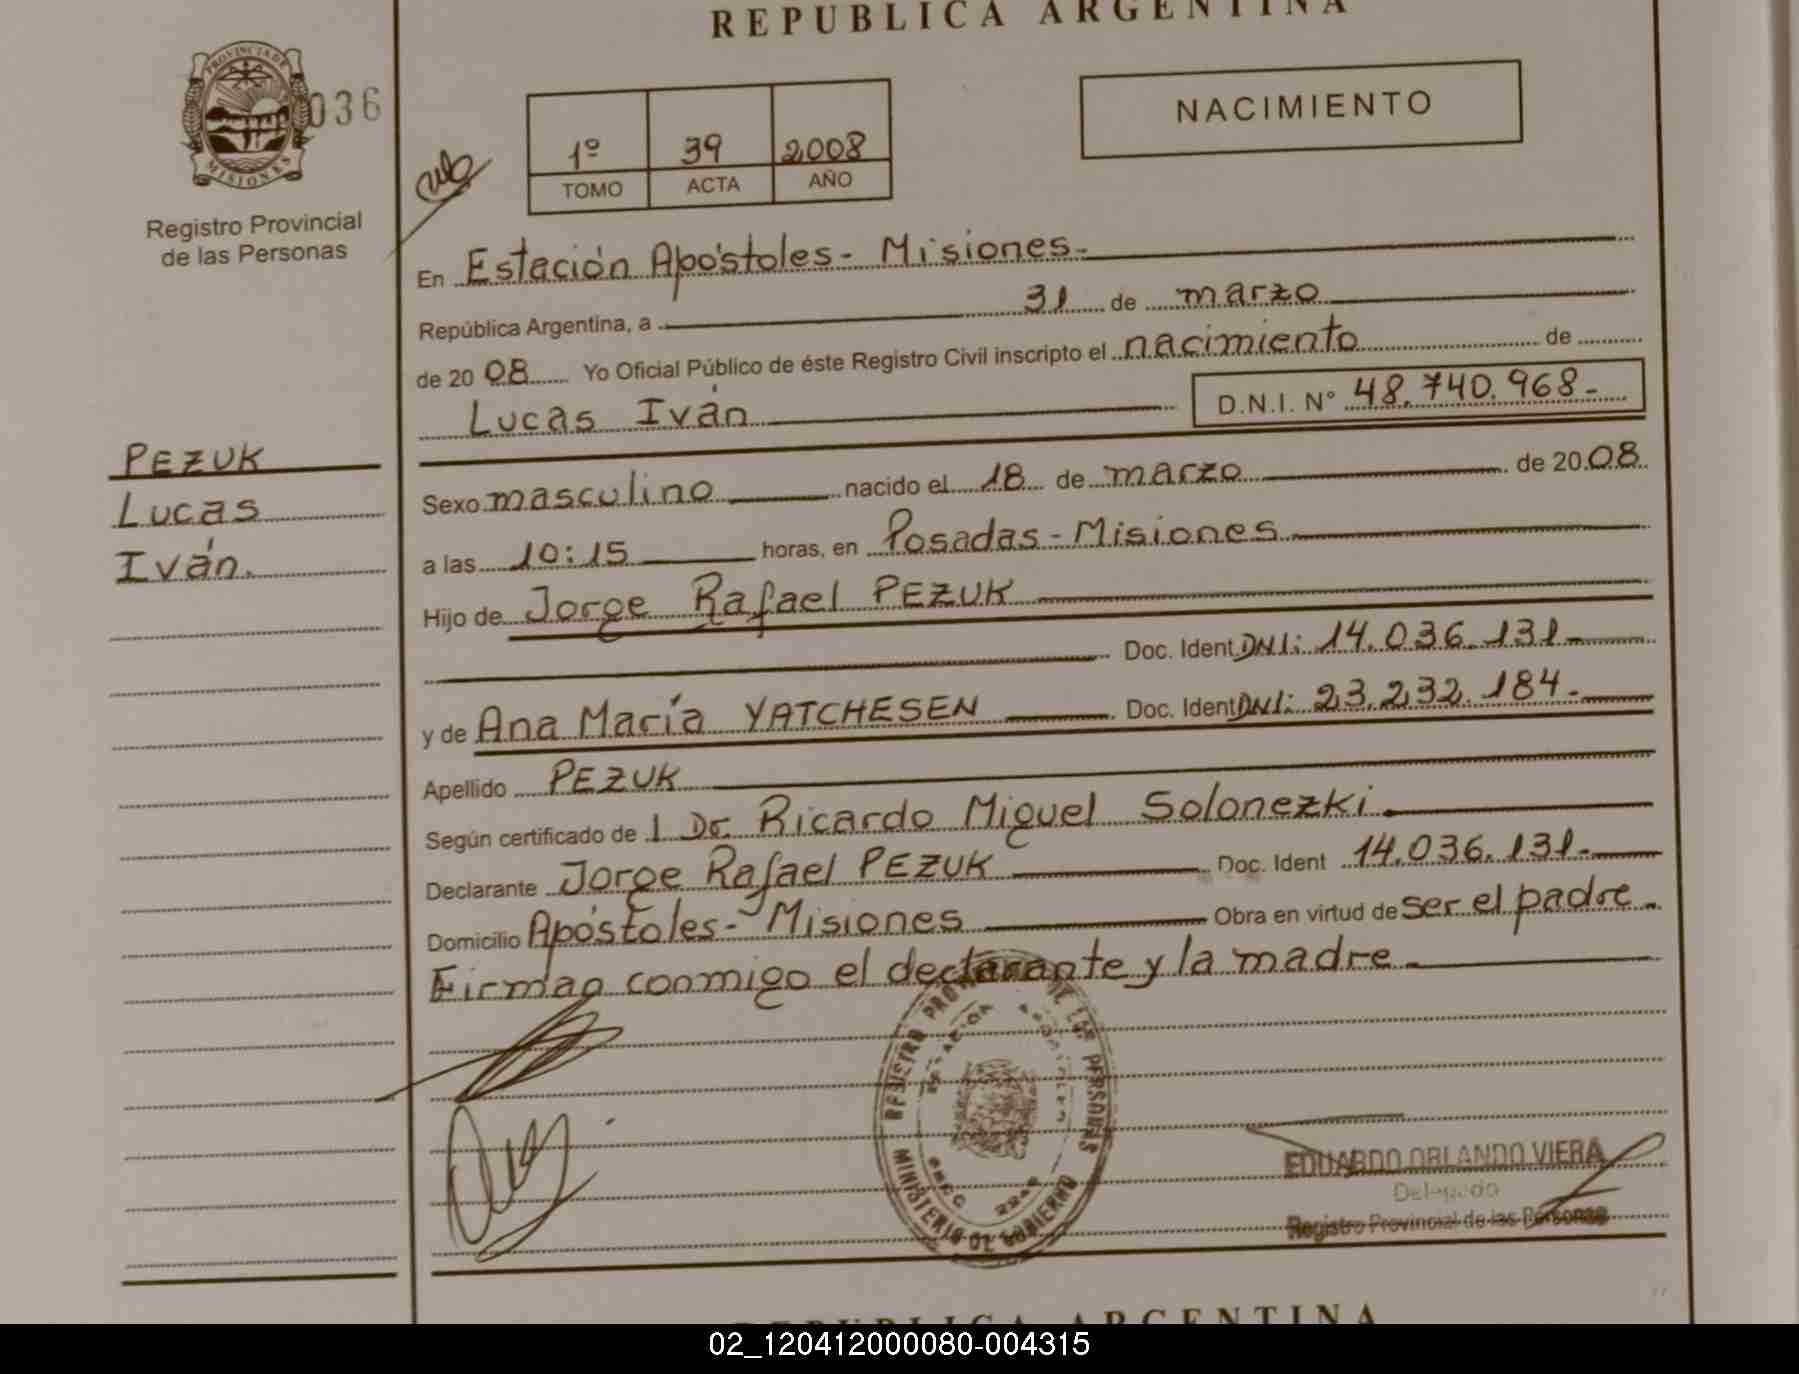 REPUBLICA ARGENTINA
PROVINCIA DE
MISIONES
036
Registro Provincial
de las Personas
1º 39 2008
TOMO ACTA AÑO
NACIMIENTO
En Estación Apóstoles - Misiones -
República Argentina, a 31 de marzo
de 2008 Yo Oficial Público de éste Registro Civil inscripto el nacimiento de
Lucas Iván D.N.I. N° 48.740.968-
PEZUK
Lucas
Iván.
Sexo masculino nacido el 18 de marzo de 2008
a las 10:15 horas, en Posadas - Misiones
Hijo de Jorge Rafael PEZUK
Doc. Ident DNI: 14.036.131-
y de Ana María YATCHESEN Doc. Ident DNI: 23.232.184-
Apellido PEZUK
Según certificado de l Dr. Ricardo Miguel Solonezki
Declarante Jorge Rafael PEZUK Doc. Ident 14.036.131-
Domicilio Apóstoles - Misiones Obra en virtud de ser el padre.
Firman conmigo el declarante y la madre
REGISTRO PROV DE LAS PERSONAS
MINISTERIO DE GOBIERNO
EDUARDO ORLANDO VIERA
Delegado
Registro Provincial de las Personas
REPUBLICA ARGENTINA
02_120412000080-004315